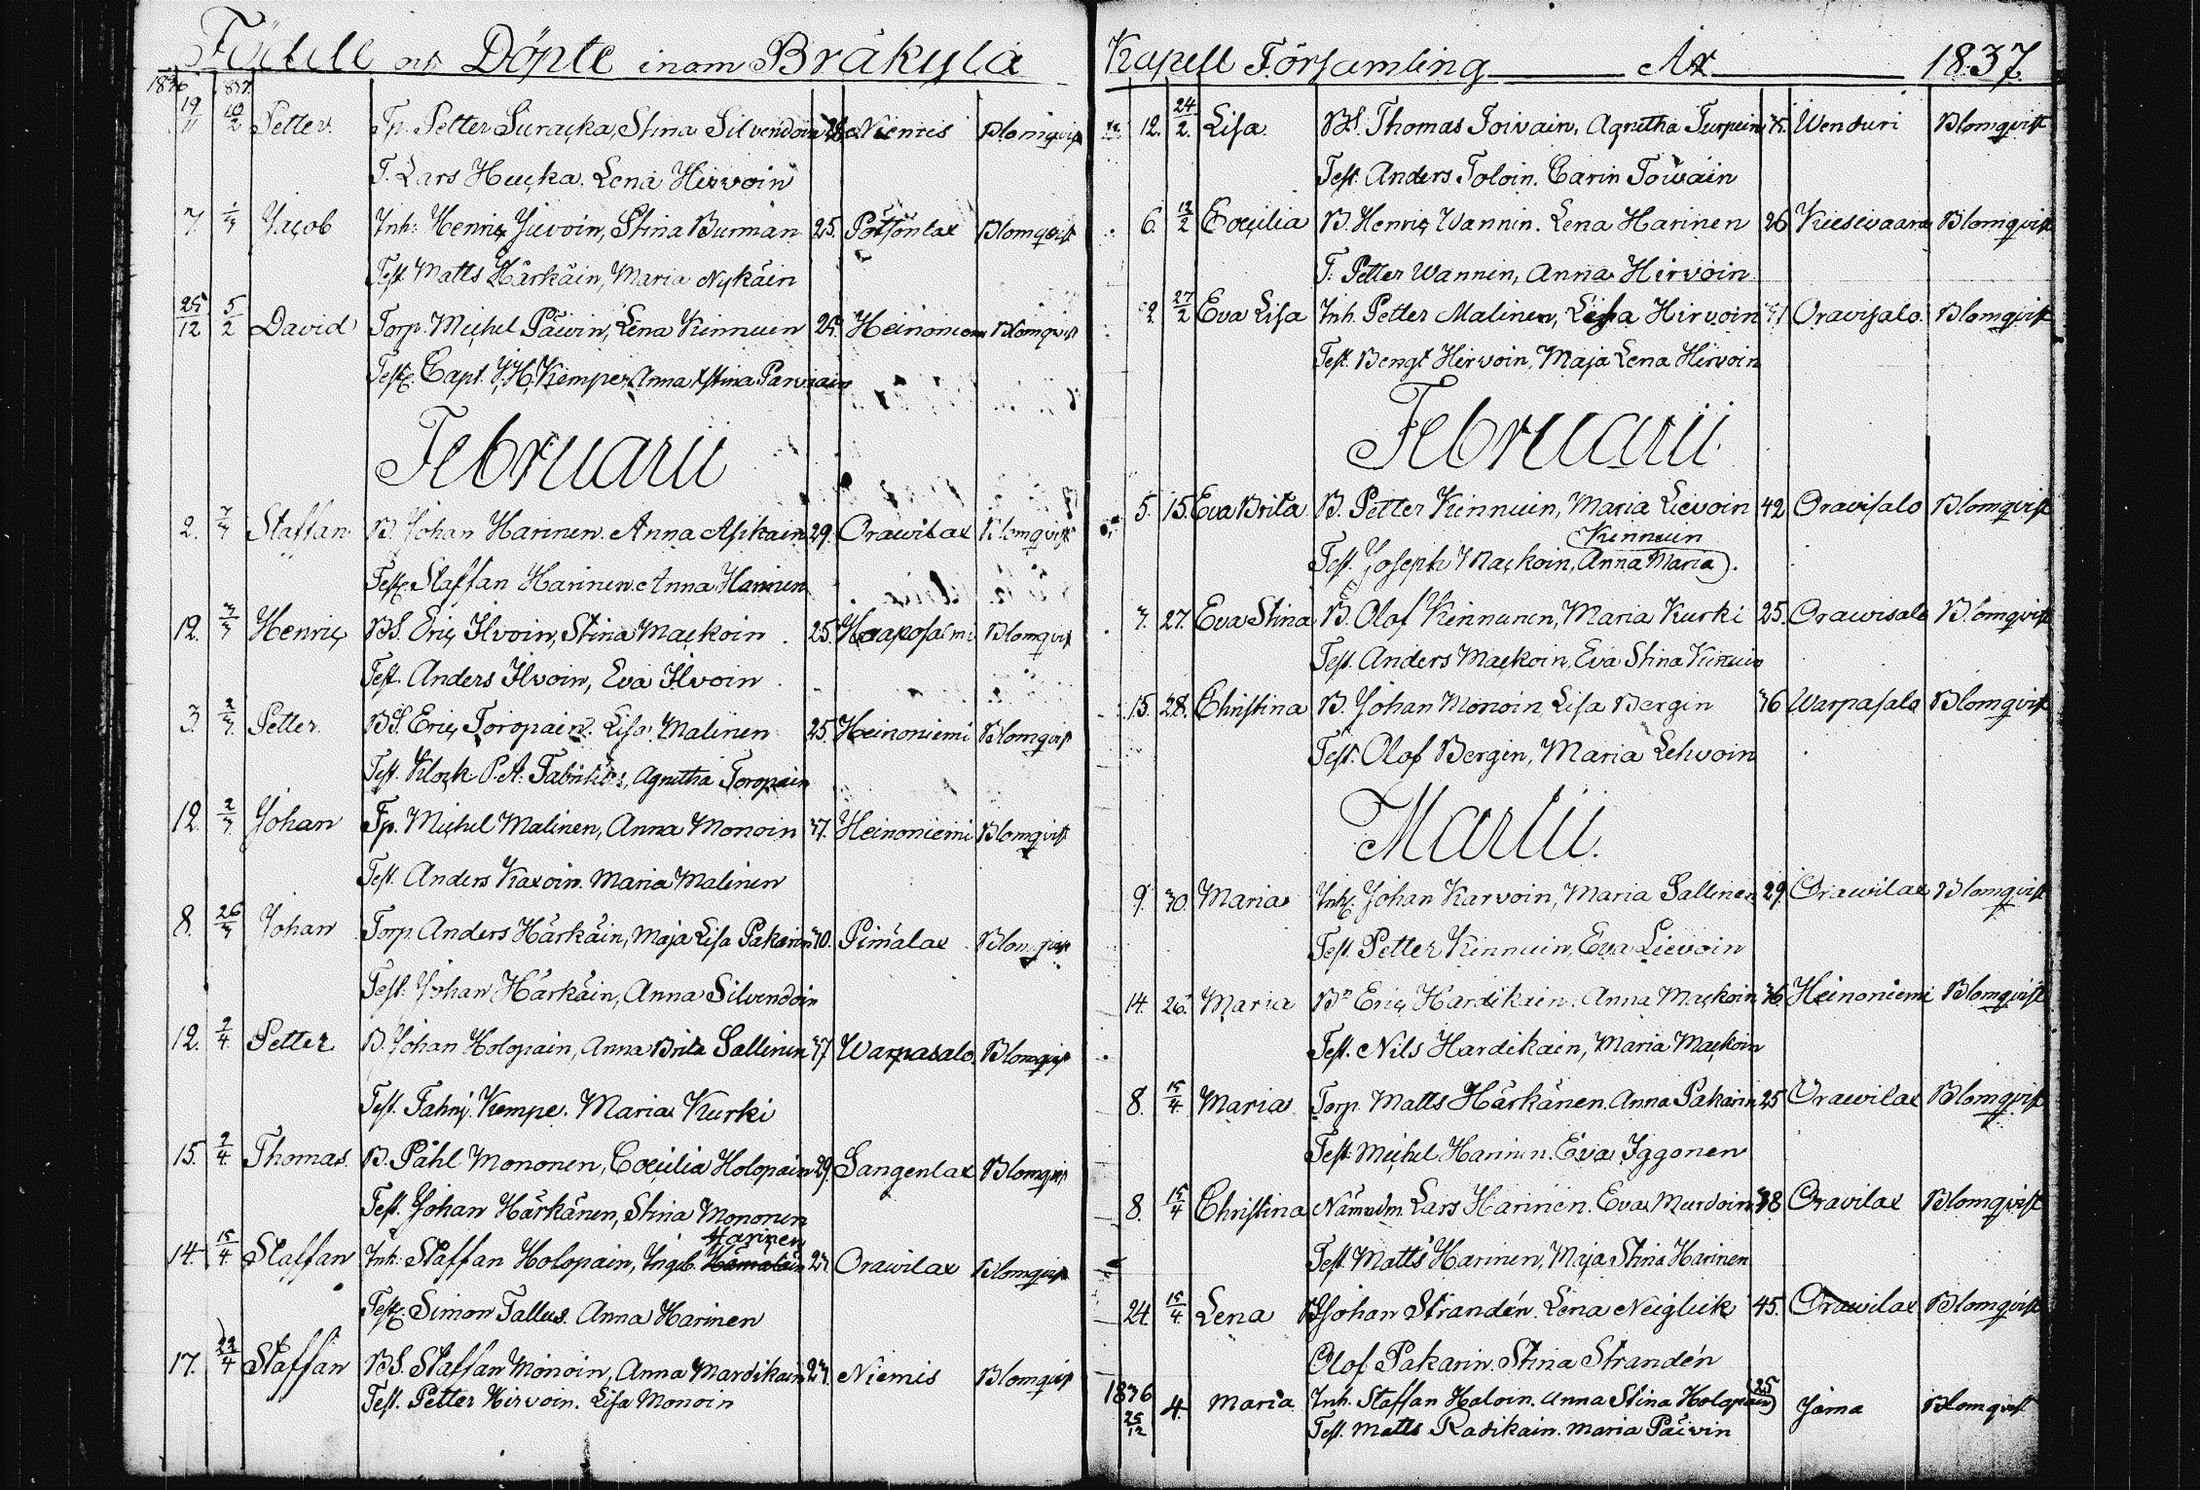 Födde och Döpte inom Bräkylä
1836 1837
19/11 10/2 Petter. Tp. Petter Suraçka, Stina Silvendoin 28 Niemis Blomqvist
T. Lars Huçka. Lena Hirvoin
7. 1/3 Jaçob Inh: Henriç Juvoin, Stina Burman 25. Pötsönlax Blomqvist
Test. Matts Härkäin, Maria Nykäin
25/12 5/2 David Torp. Miçhel Päivin, Lena Kinnuin Heinoniemi Blomqvist
Test. Capt. Kempe, Anna Stina Parviain
Februarii
2. 3/3 Staffan. B. Johan Harinen. Anna Asikain 29. Orawilax Blomqvist
Test. Staffan Harinen. Anna Harinen
12. 3/3 Henriç BS. Eriç Ilvoin, Stina Maçkoin 25. Haaposalmi Blomqvist
Test. Anders Ilvoin, Eva Ilvoin
3. 2/3 Petter. BS. Eriç Toropain. Lisa Malinen 25. Heinoniemi Blomqvist
Test. Klock P.A. Fabritius, Agnetha Toropain
12. 2/3 Johan Tp. Miçhel Malinen, Anna Monoin 37. Heinoniemi Blomqvist
Test. Anders Karoin. Maria Malinen
8. 26/3 Johan Torp. Anders Härkäin, Maja Lisa Pakarin 30. Pimälax Blomqvist
Test. Johan Härkäin, Anna Silvendoin
12. 2/4 Petter B. Johan Holopain, Anna Brita Sallinin 37 Warpasalo. Blomqvist
Test. Fahnj. Kempe. Maria Kurki
15. 2/4 Thomas. B. Påhl Mononen, Cœçilia Holopain 29. Sangenlax Blomqvist
Test. Johan Härkänen, Stina Mononen
Harinen
14. 15/4 Staffan Inh: Staffan Holopain, Ingeb. Hämäläin Orawilax Blomqvist
Test. Simon Tallus. Anna Harinen
17. 22/4 Staffan BS. Staffan Monoin, Anna Mardikain Niemis Blomqvist
Test. Petter Hirvoin. Lisa Monoin
Kapell Församling År 1837.
12. 24/2 Lisa. BS. Thomas Toivain, Agnetha Turpein 35. Wenturi Blomqvist
Test. Anders Toloin. Carin Toivain
6. 12/2 Cœçilia B. Henriç Wannin. Lena Harinen 26 Kiesiwaara Blomqvist
T. Petter Wannin, Anna Hirvoin
2 27/2 Eva Lisa Inh. Petter Malinen, Lisa Hirvoin 31 Oravisalo. Blomqvist
Test. Bengt Hirvoin, Maja Lena Hirvoin
Februarii.
5. 15. Eva Brita B. Petter Kinnuin, Maria Lievoin 42 Oravisalo Blomqvist
Kinnuin
Test. Joseph Maçkoin, Anna Maria).
7. 27. Eva Stina B. Olof Kinnunen, Maria Kurki 25. Orawisalo Blomqvist
Test. Anders Maçkoin, Eva Stina Kinnuin
15. 28. Christina B. Johan Monoin Lisa Bergin 36 Warpasalo Blomqvist
Test. Olof Bergin, Maria Lehvoin
Martii.
9. 30. Maria Inh. Johan Karvoin, Maria Sallinen 29. Orawilax Blomqvist
Test. Petter Kinnuin, Eva Lievoin
14. 26. Maria Bn Eriç Hardikain. Anna Maçkoin 36 Heinoniemi Blomqvist
Test. Nils Hardikain, Maria Maçkoin
8. 15/4 Maria Torp. Matts Härkänen. Anna Pakarin 25 Orawilax Blomqvist
Test. Miçhel Harinen. Eva Iggonen
8. 15/4 Christina Nämndm. Lars Harinen. Eva Murdoin 38 Oravilax Blomqvist
Test. Matts Harinen, Maja Stina Harinen
24. 15/4 Lena Johan Strandén. Lena Neiglick 45. Orawilax Blomqvist
Olof Pakarin. Stina Strandén
1836 25/12 4. Maria. Inh. Staffan Haloin. Anna Stina Holopain) 25 Jäma Blomqvist
Test. Matts Radikain. Maria Päivin